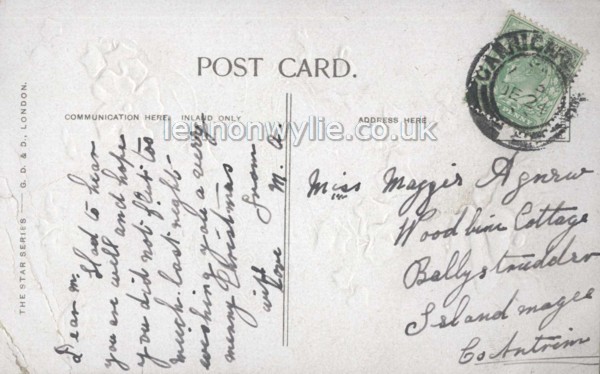 POST CARD.
COMMUNICATION HERE, INLAND ONLY
ADDRESS HERE
lennonwylie.co.uk
THE STAR SERIES — G. D. & D., LONDON.
DE 24
Dear M.
Glad to hear
you are well and hope
you did not flirt too
much last night
wishing you a very
merry Christmas
with
Love from
M. A.
Miss Maggie Agnew
Woodbine Cottage
Ballystrudder
Islandmagee
Co Antrim